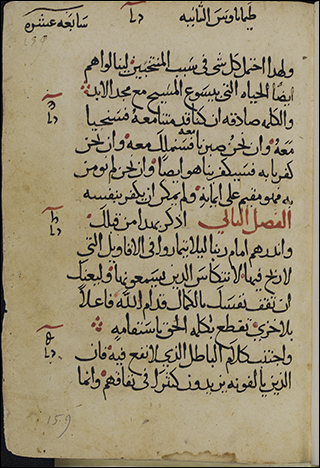 طيماتاوس الثانيه
سابعة عشره
ولهذا احتمل كل شي في سبب المنتخبين لينالوا هم
ايضا الحياه التي بيسوع المسيح مع مجد الابد
والكلمه صادقه ان كنا قد متنا معه فسنحيا
معه وان نحن صبرنا فسنملك معه وان نحن
كفرنا به فسيكفر بنا هو ايضا وان نحن لم نومن
به فهو مقيم على امانته ولم يمكن ان يكفر بنفسه
الفصل الثاني اذكر بهذا من قبلك
واندرهم امام ربنا ليلا يتماروا في الاقاويل التي
لا ربح فيها الا انتكاس الدين يسمعونها وليعنك
ان تقف نفسك بالكمال قدام الله فاعلا
بلا خزي تقطع بكلمه الحق باستقامه
واجتنب كلام الباطل الذي لا نفع فيه فان
الدين يالفونه يزيدون كثيرا في نفاقهم وانما
159